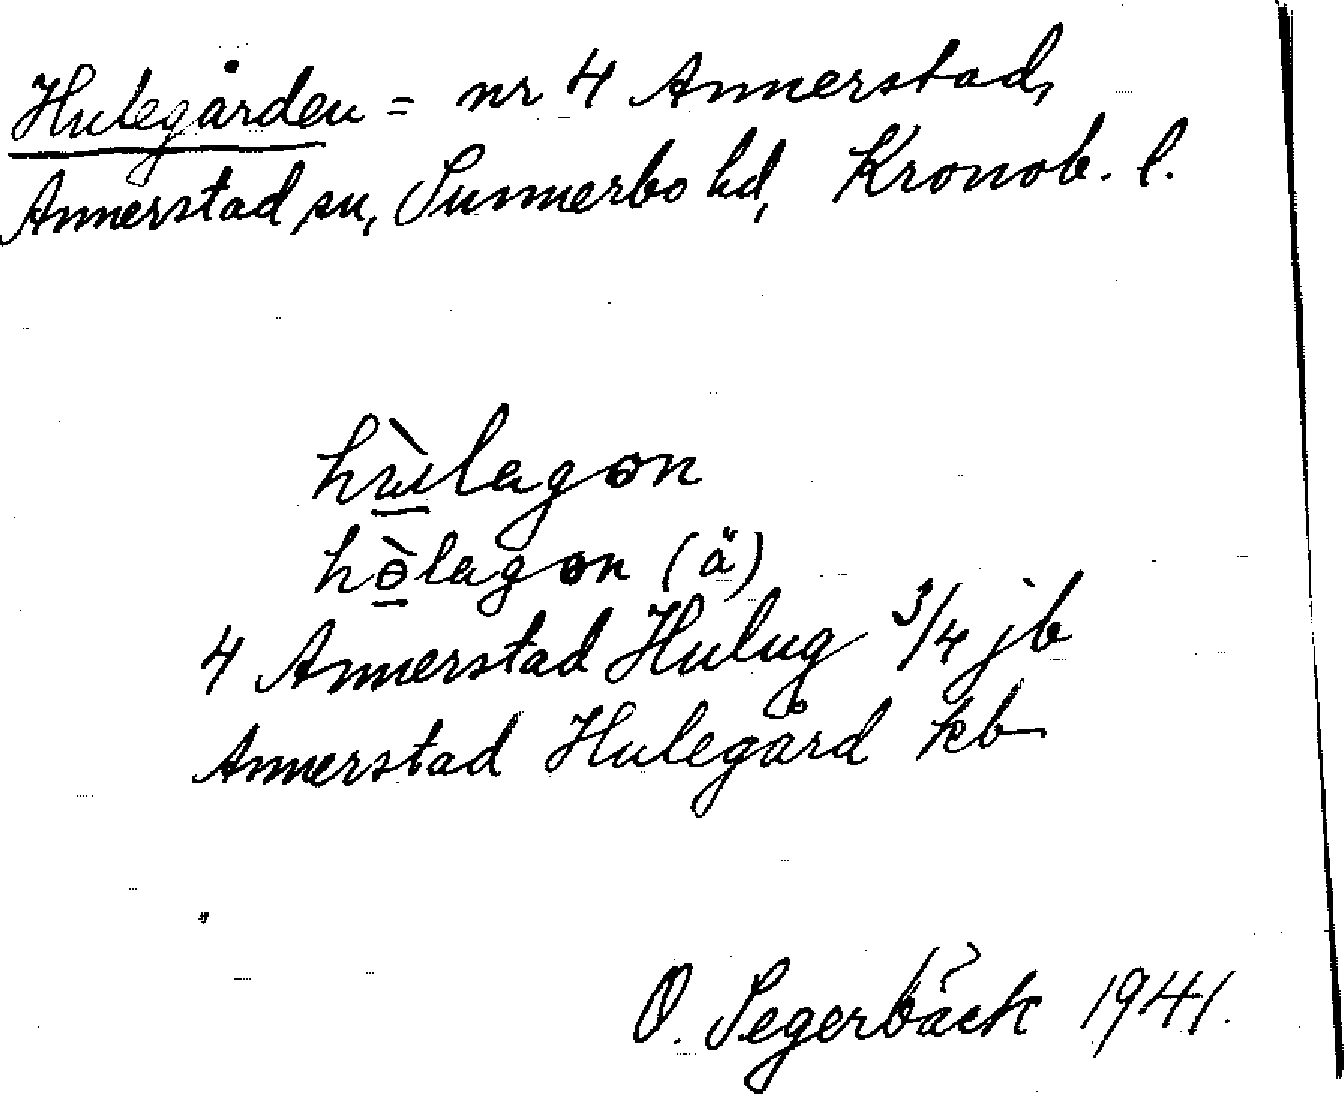 Hulegården = nr 4 Annerstad,
Annerstad sn, Sunnerbo hd, Kronob. l.
hùlagən
hòlagən (ä)
4 Annerstad Hulug 3/4 jb
Annerstad Hulegård kb
O. Segerbäck 1941.